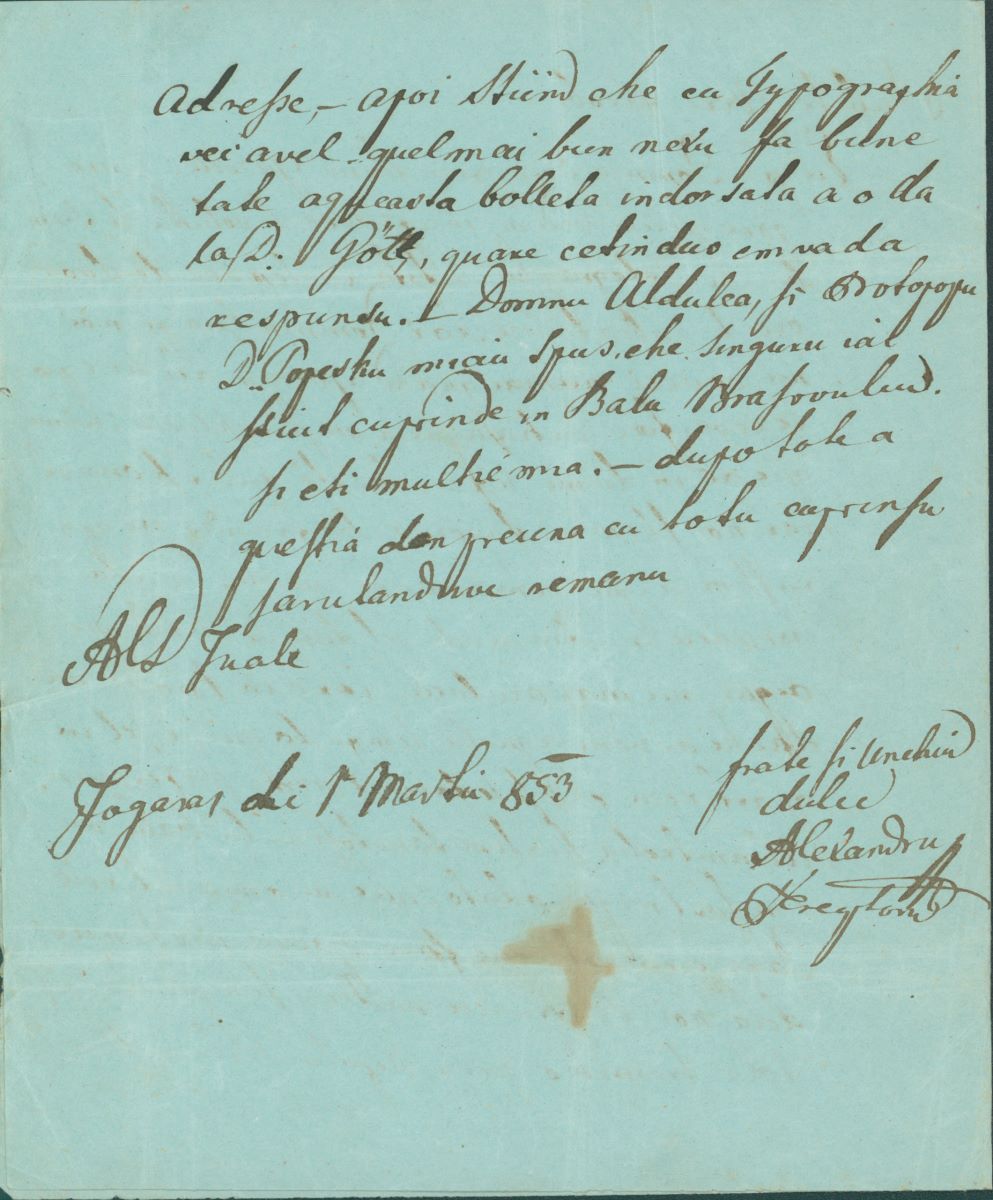 Adresse, – apoi stiind che cu Typographia
vei avel quel mai bun nexu fa bune
tate aqueasta bolleta indorsata a o da
la D. Gött, quare cetinduo em va da
respunsu. – Domnu Aldulea, si Protopopu
D. Popesku miau spus, che singuru ial
stiut cuprinde in Balu Brasovului.
si eti multiemia. – dupo tote a
questia denpreuna cu totu cuprinsu
sarutanduve remanu
Als Tuale
Fogaras dei 1 Martiu 853
frate si unchiu
dulce
Alexandru